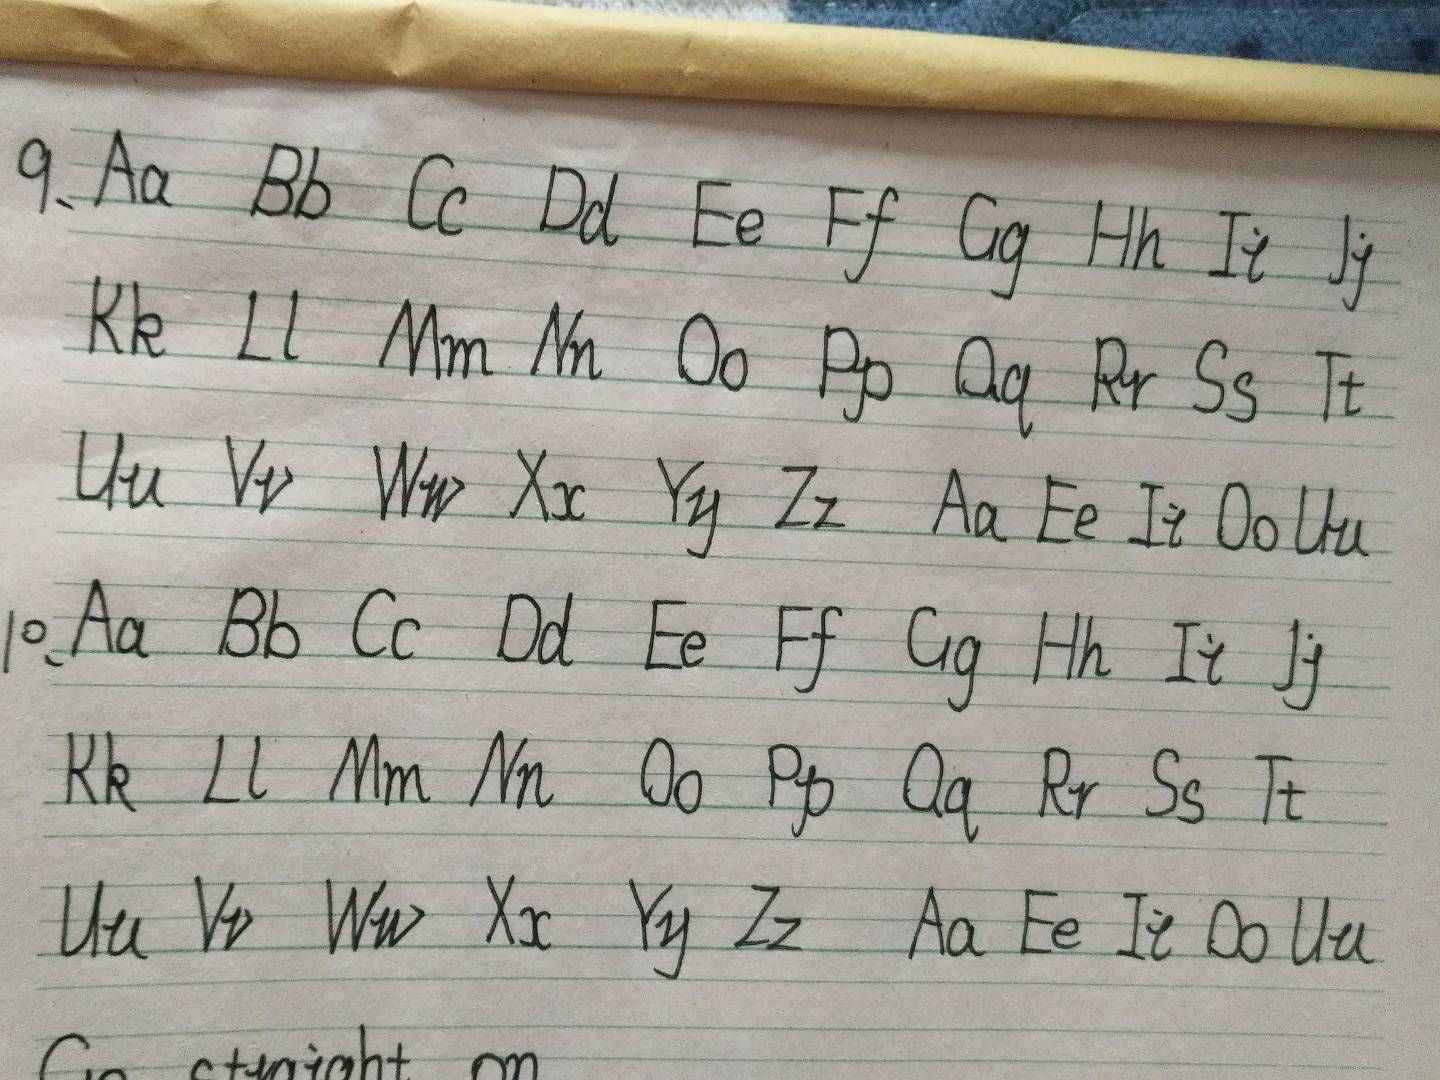 9、Aa Bb Cc Dd Ee Ff Gg Hh Ii Jj
Kk Ll Mm Nn Oo Pp Qq Rr Ss Tt
Uu Vv Ww Xx Yy Zz Aa Ee Ii Oo Uu
10、Aa Bb Cc Dd Ee Ff Gg Hh Ii Jj
Kk Ll Mm Nn Oo Pp Qq Rr Ss Tt
Uu Vv Ww Xx Yy Zz Aa Ee Ii Oo Uu
Go straight on